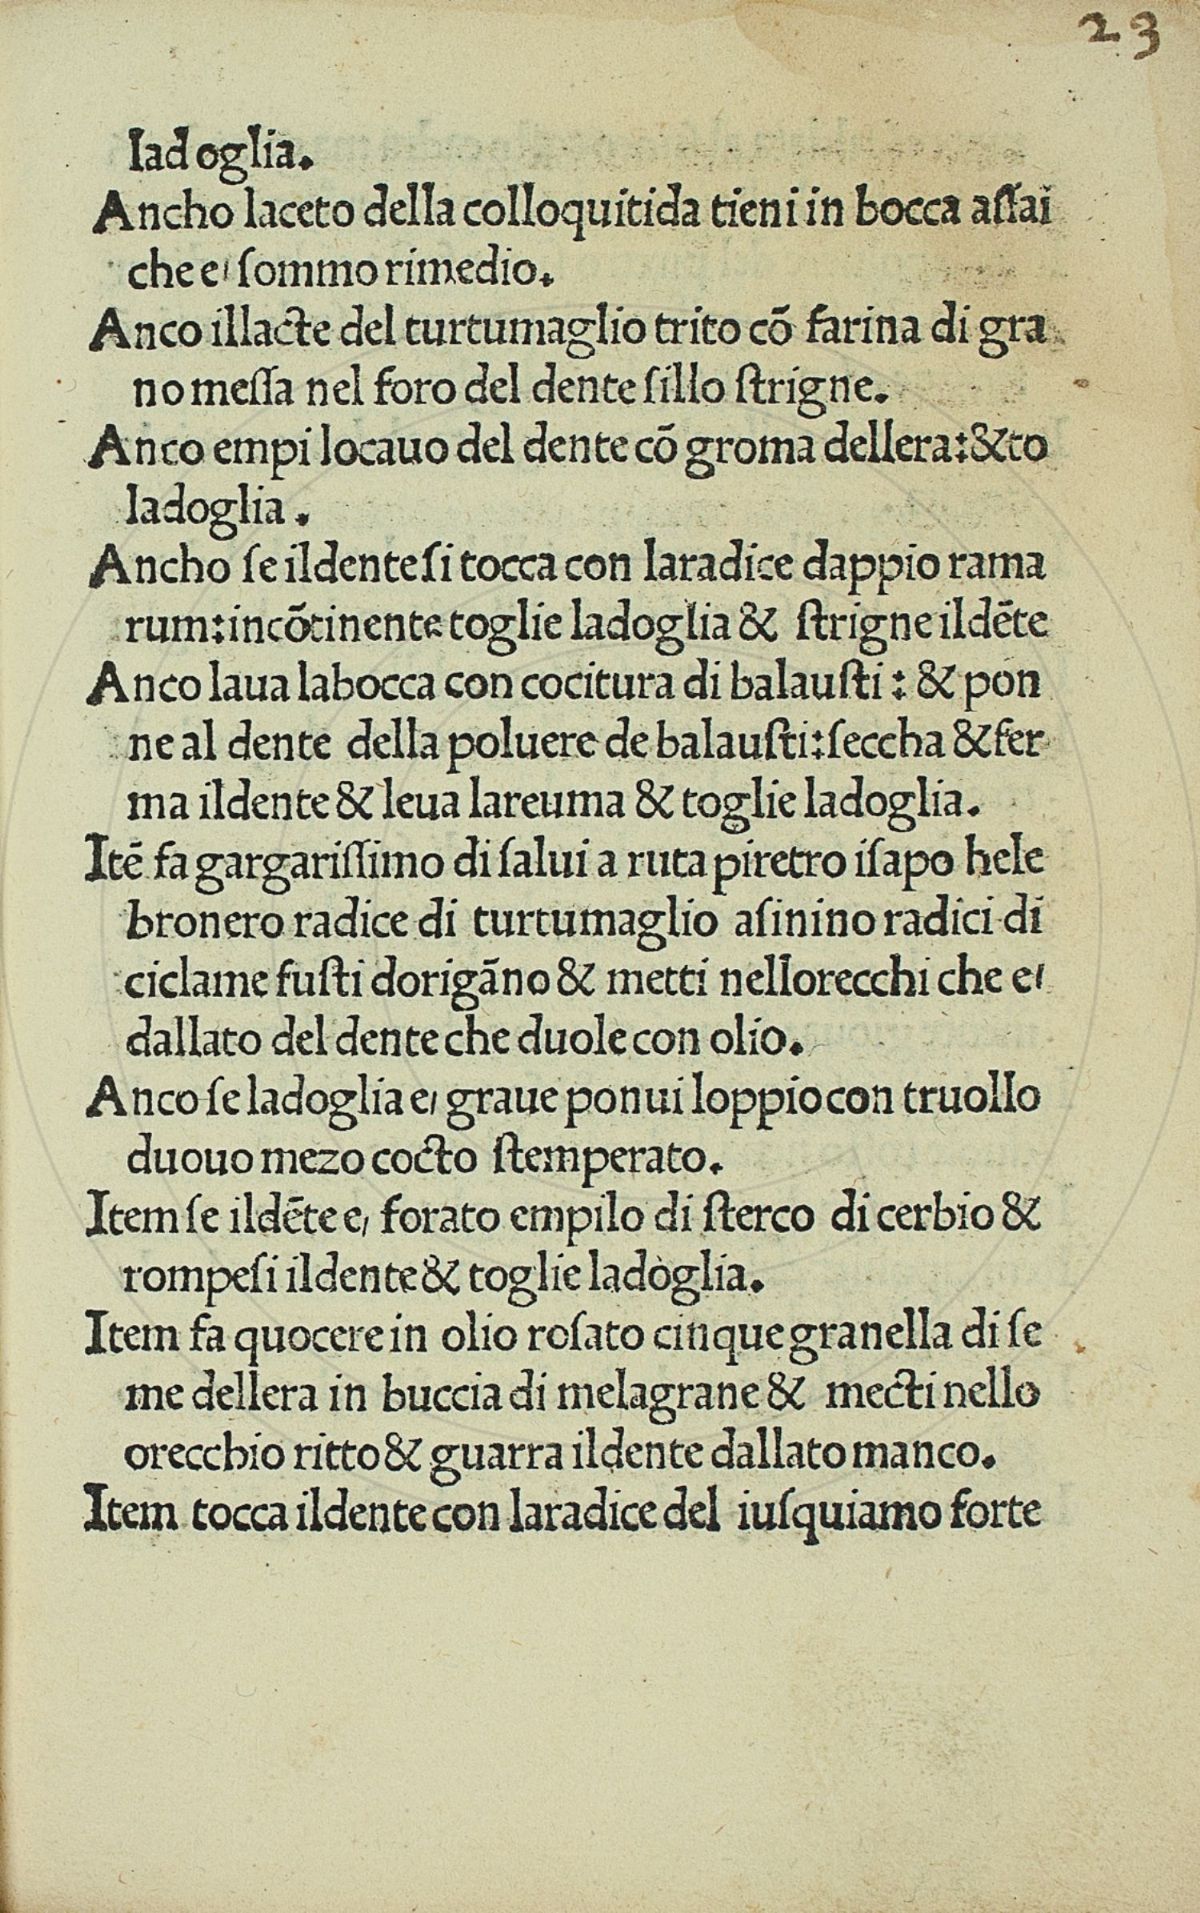 23
ladoglia.
Ancho laceto della colloquitida tieni in bocca aſſai
che e/ ſommo rimedio.
Anco illacte del turtumaglio trito cō farina di gra
no meſſa nel foro del dente ſillo ſtrigne.
Anco empi locauo del dente cō groma dellera: & to
ladoglia.
Ancho ſe ildente ſi tocca con laradice dappio rama
rum: incōtinente toglie ladoglia & ſtrigne ildēte
Anco laua labocca con cocitura di balauſti: & pon
ne al dente della poluere de balauſti: ſeccha & fer
ma ildente & leua lareuma & toglie ladoglia.
Itē fa gargariſſimo di ſalui a ruta piretro iſapo hele
bronero radice di turtumaglio aſinino radici di
ciclame fuſti dorigāno & metti nellorecchi che e/
dallato del dente che duole con olio.
Anco ſe ladoglia e/ graue ponui loppio con truollo
duouo mezo cocto ſtemperato.
Item ſe ildēte e/ forato empilo di ſterco di cerbio &
rompeſi ildente & toglie ladoglia.
Item fa quocere in olio roſato cinque granella di ſe
me dellera in buccia di melagrane & mecti nello
orecchio ritto & guarra ildente dallato manco.
Item tocca ildente con laradice del iuſquiamo forte